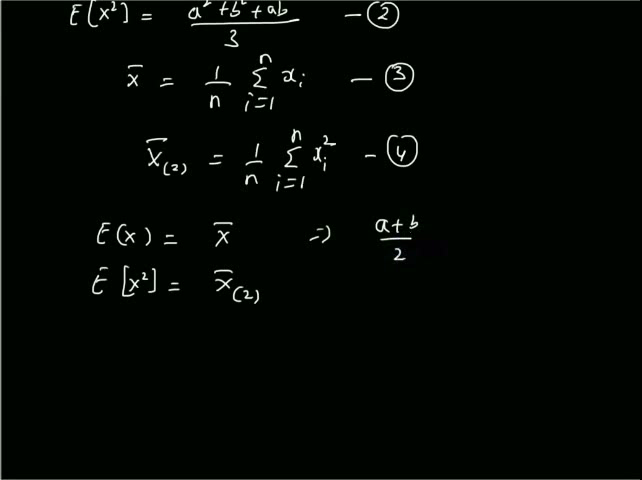 E[x²] = a²+b²+ab / 3 — ②
x̄ = 1/n Σ_{i=1}^{n} xᵢ — ③
x̄₍₂₎ = 1/n Σ_{i=1}^{n} xᵢ² — ④
E(x) = x̄ ⇒ a+b / 2
E[x²] = x̄₍₂₎